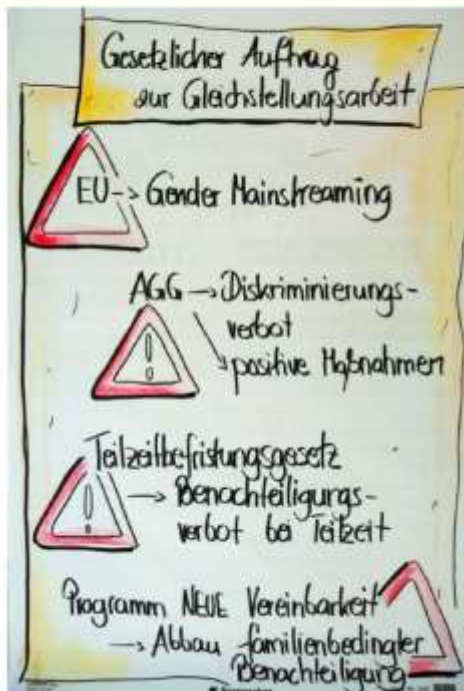 Gesetzlicher Auftrag
zur Gleichstellungsarbeit
EU → Gender Mainstreaming
AGG → Diskriminierungs-
verbot
→ positive Maßnahmen
Teilzeitbefristungsgesetz
→ Benachteiligungs-
verbot bei Teilzeit
Programm NEUE Vereinbarkeit
→ Abbau familienbedingter
Benachteiligung